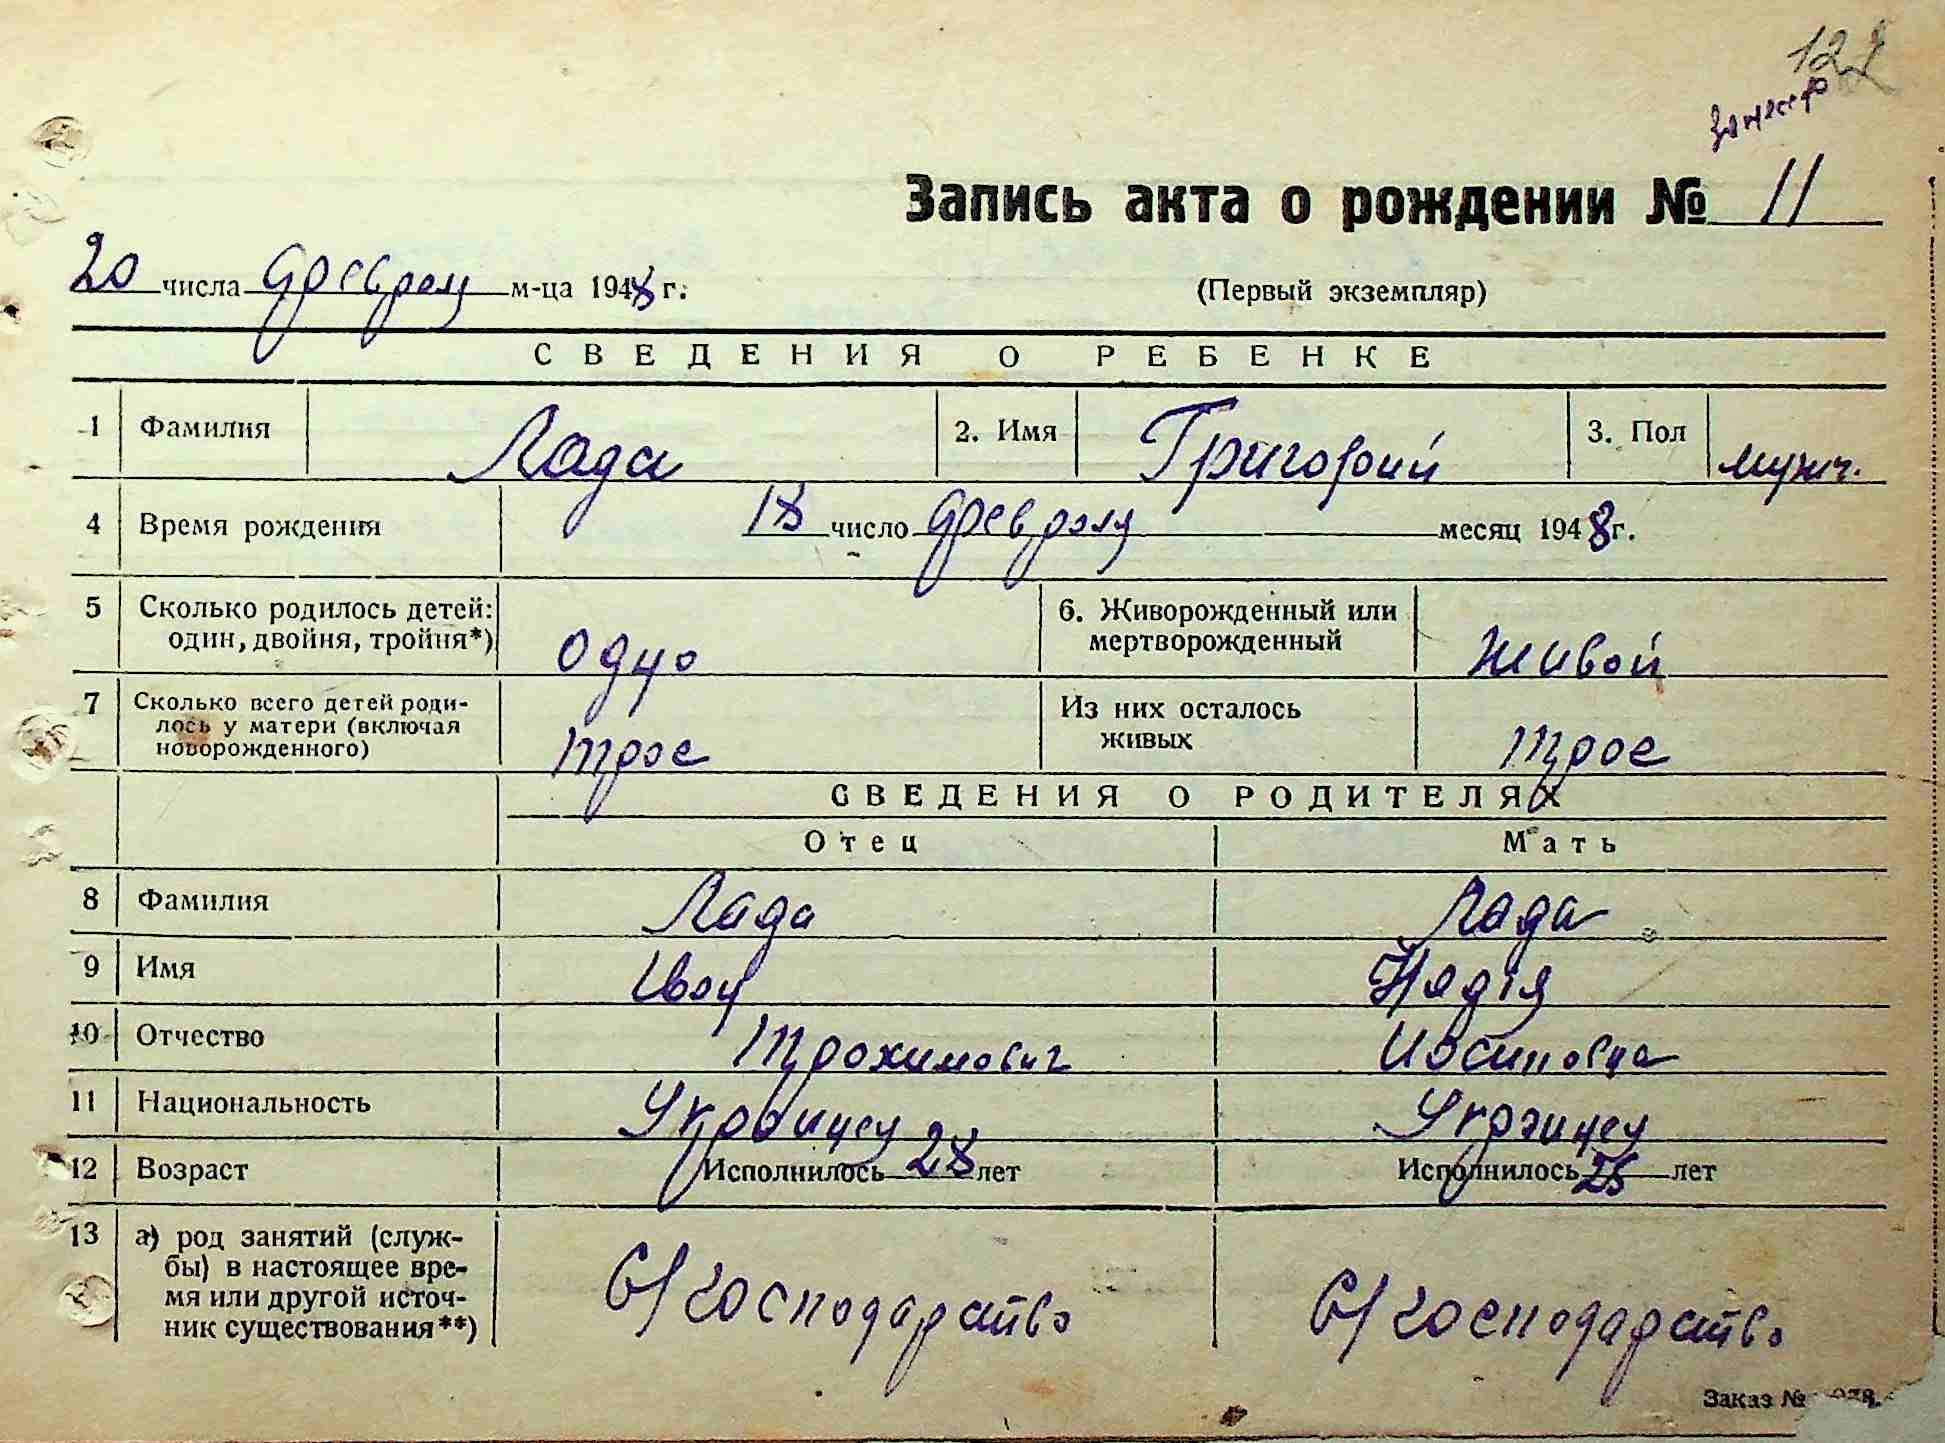 122
Запись акта о рождении № 11
20 числа февраля м-ца 1948 г.
(Первый экземпляр)
СВЕДЕНИЯ О РЕБЕНКЕ
1 Фамилия Лада 2. Имя Григорий 3. Пол мужч.
4 Время рождения 18 число февраля месяц 1948 г.
5 Сколько родилось детей: 6. Живорожденный или
один, двойня, тройня*) одно мертворожденный живой
7 Сколько всего детей роди- Из них осталось
лось у матери (включая живых
новорожденного) трое трое
СВЕДЕНИЯ О РОДИТЕЛЯХ
Отец Мать
8 Фамилия Лада Лада
9 Имя Иван Надія
10 Отчество Трохимович Иосиповна
11 Национальность Украинец Украинец
12 Возраст Исполнилось 28 лет Исполнилось 25 лет
13 а) род занятий (служ-
бы) в настоящее вре-
мя или другой источ- С/господарство С/господарство
ник существования**)
Заказ №